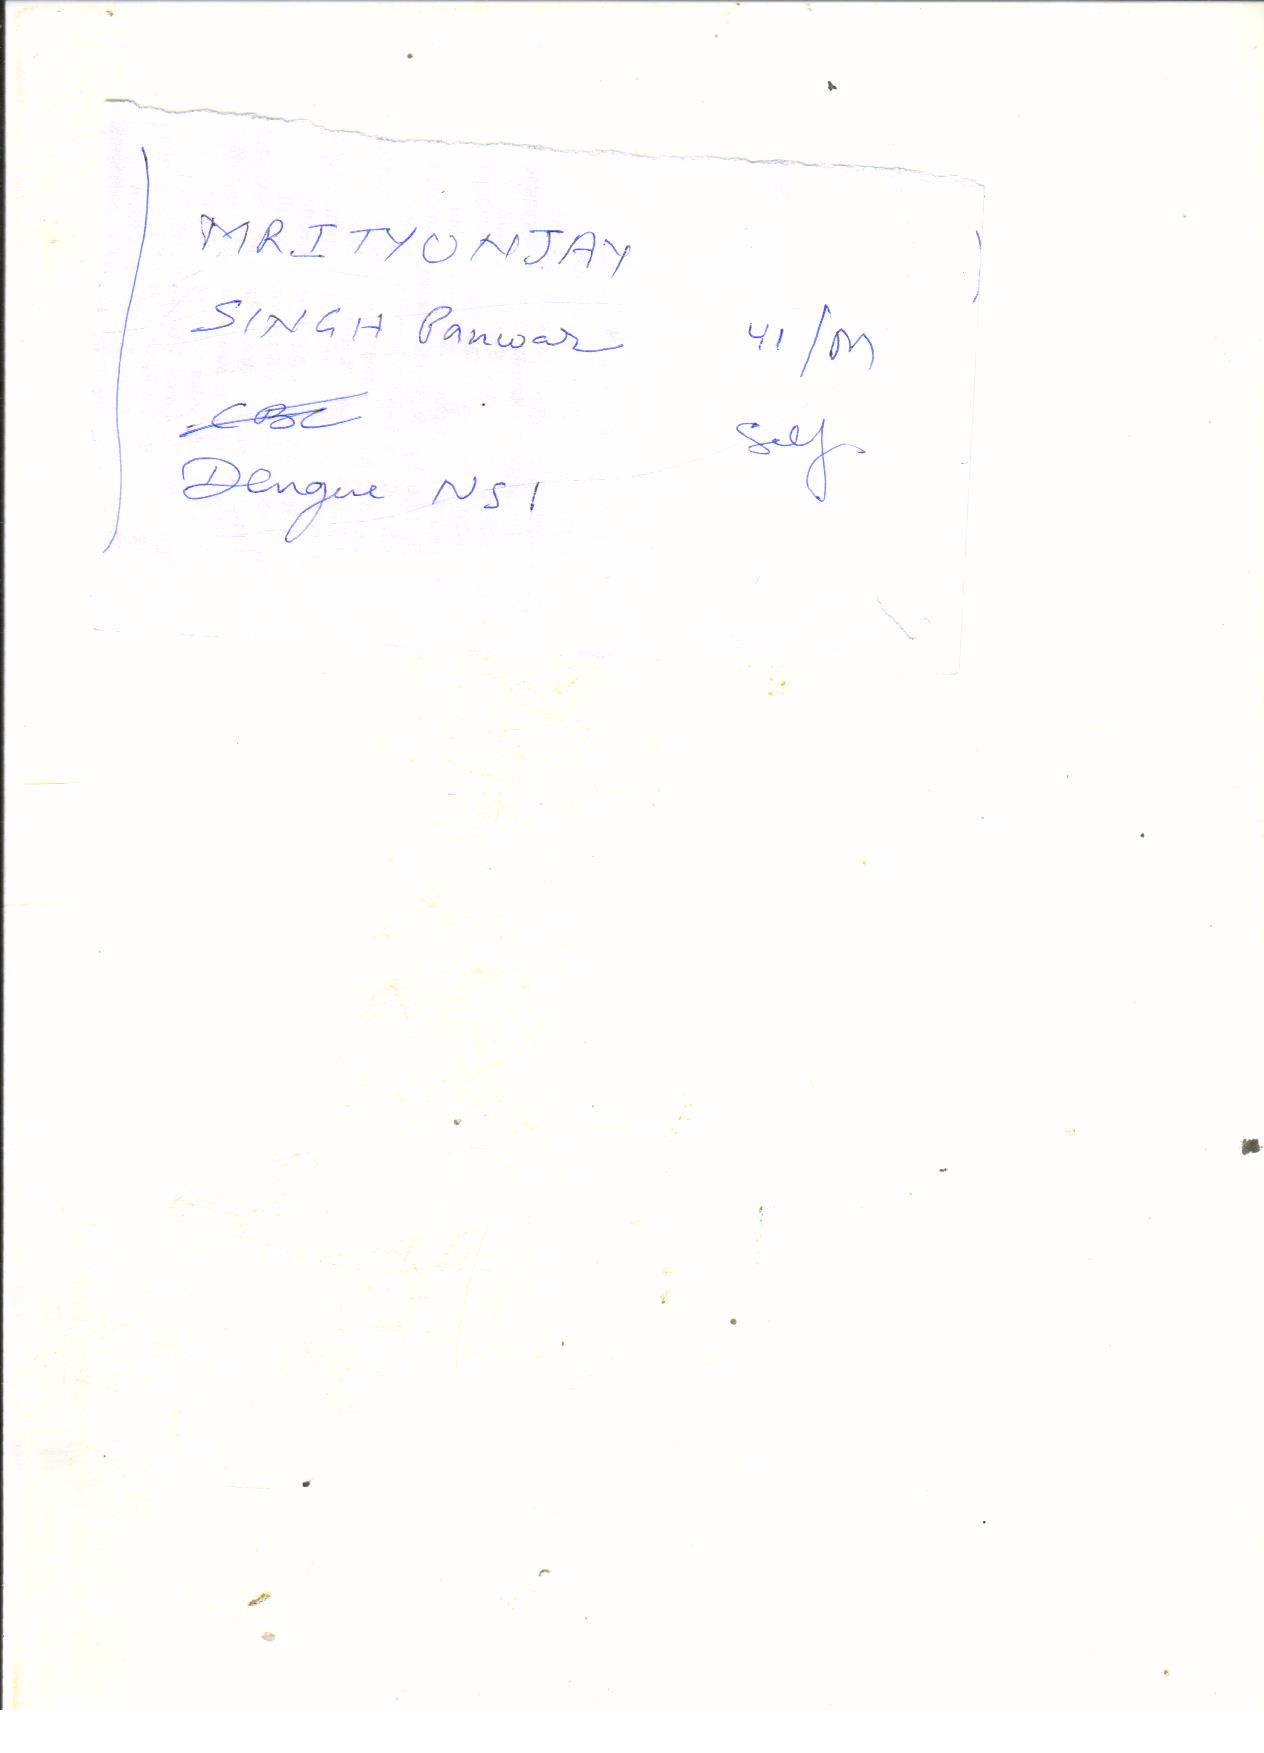 MRITYUNJAY
SINGH Panwar 41/M
CBC Self
Dengue NS1